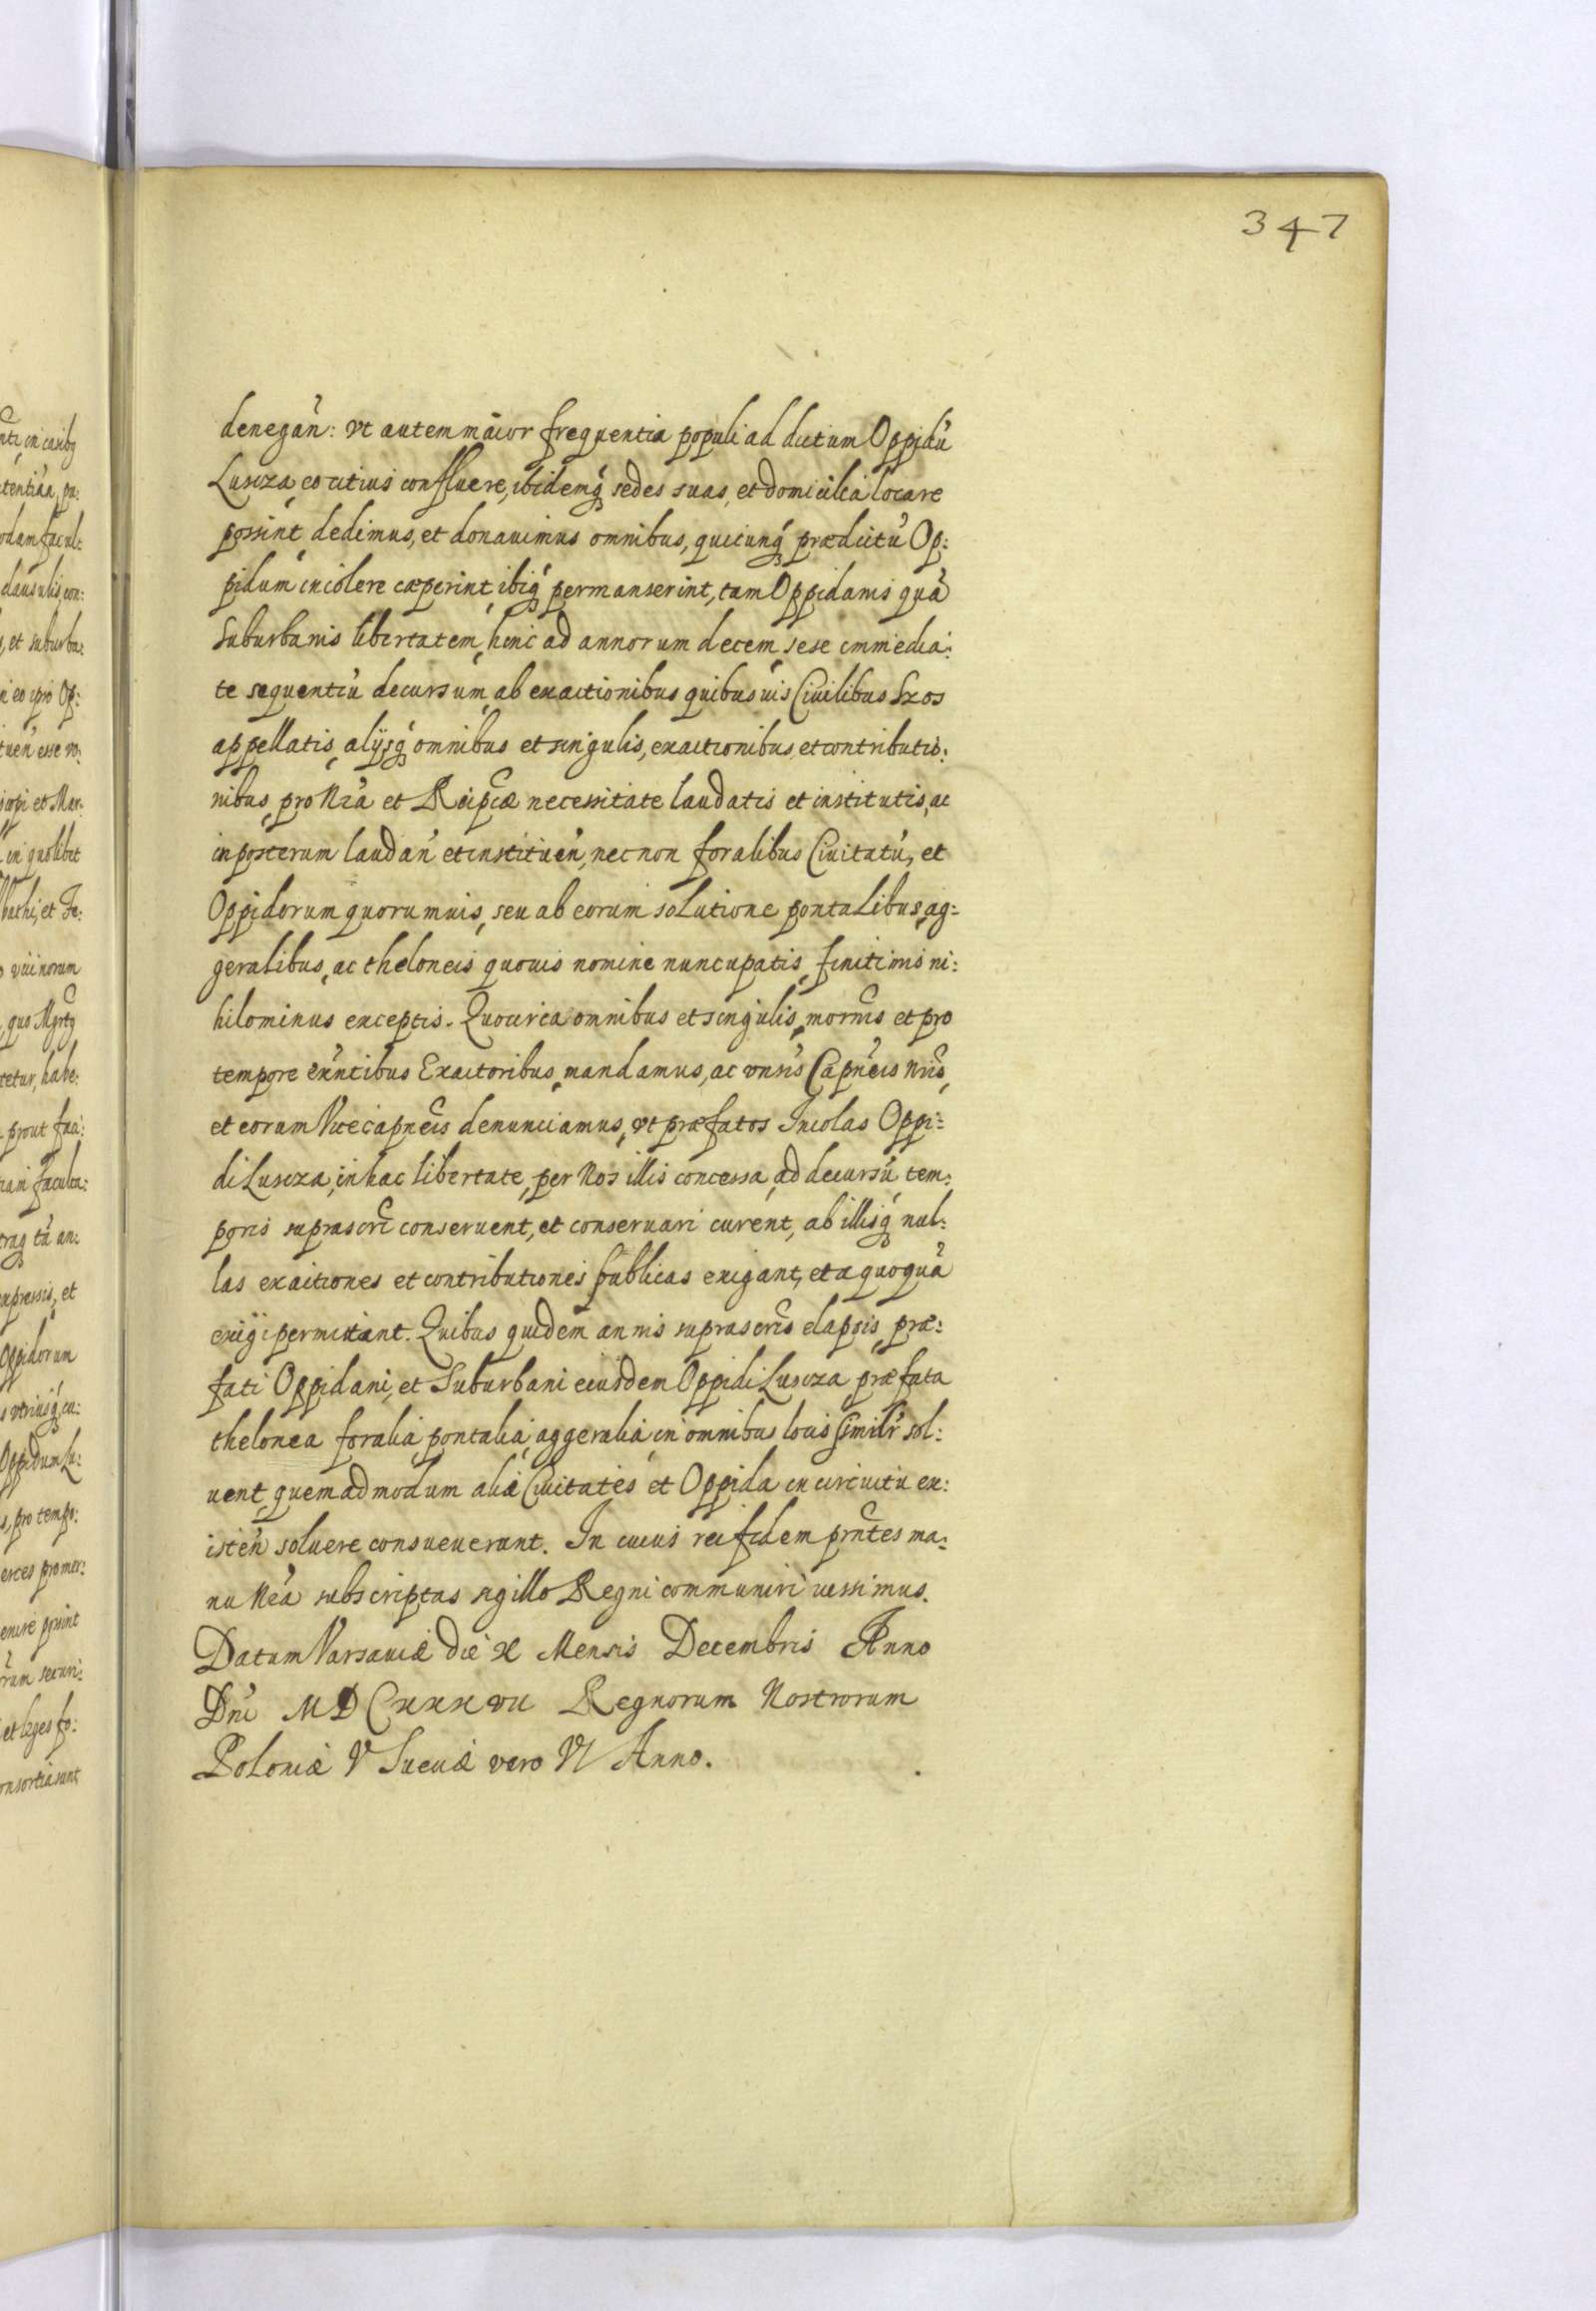 347
denegań: Vt autem maior frequentia populi ad dictum Oppidū
Luscza, eo citius confluere, ibidemq́ sedes suas, et domicilia locare
possint, dedimus, et donauimus omnibus, quicunq́ prædictū Op:
pidum incolere cæperint, ibiq́ permanserint, tam Oppidanis quā
Suburbanis libertatem, hinc ad annorum decem, sese immedia:
te sequentiū decursum, ab exactionibus quibusuis Ciuilibus Szos
appellatis, alijsq́ omnibus et singulis, exactionibus, et contributio:
nibus, pro Nrā et Reipcæ necessitate laudatis et institutis, ac
inposterum laudań et instituéń, necnon foralibus Ciuitatū, et
Oppidorum quorumuis, seu ab eorum solutione pontalibus, ag=
geralibus, ac theloneis quouis nomine nuncupatis, finitimis ni:
hilominus exceptis. Quocirca omnibus et singulis, mornis et pro
tempore exn̄tibus Exactoribus, mandamus, ac vnsis Capn̄eis nris,
et eorum Vicecapneis denunciamus, vt præfatos Incolas Oppi:
di Luscza, in hac libertate, per Nos illis concessa, ad decursū tem:
poris suprascri conseruent, et conseruari curent, ab illisq́ nul:
las exactiones et contributiones publicas exigant, et a quoquā
exigi permittant. Quibus quidem annis suprascris elapsis, præ:
fati Oppidani, et Suburbani eiusdem Oppidi Luscza, præfata
thelonea foralia, pontalia, aggeralia, in omnibus locis simil'r sol:
uent, quemadmodum aliæ Ciuitates et Oppida in circuitu ex:
isteń soluere consueuerunt. In cuius rei fidem prn̄tes ma:
nu Nrā subscriptas sigillo Regni communiri iussimus.
Datum Varsauiæ die X Mensis Decembris Anno
Dnī MDCXXXVII Regnorum Nostrorum
Poloniæ V Sueciæ vero VI Anno.